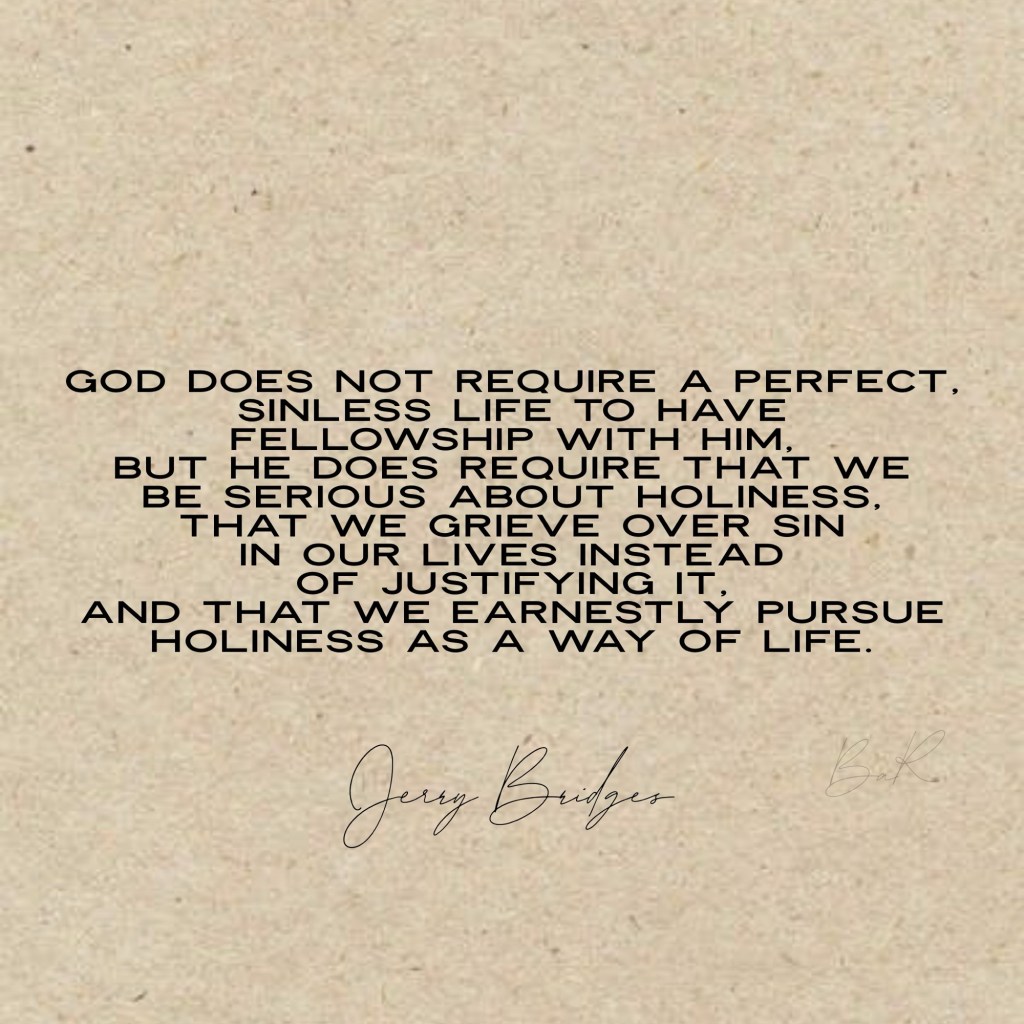 GOD DOES NOT REQUIRE A PERFECT,
SINLESS LIFE TO HAVE
FELLOWSHIP WITH HIM,
BUT HE DOES REQUIRE THAT WE
BE SERIOUS ABOUT HOLINESS,
THAT WE GRIEVE OVER SIN
IN OUR LIVES INSTEAD
OF JUSTIFYING IT,
AND THAT WE EARNESTLY PURSUE
HOLINESS AS A WAY OF LIFE.
Jerry Bridges
BaR